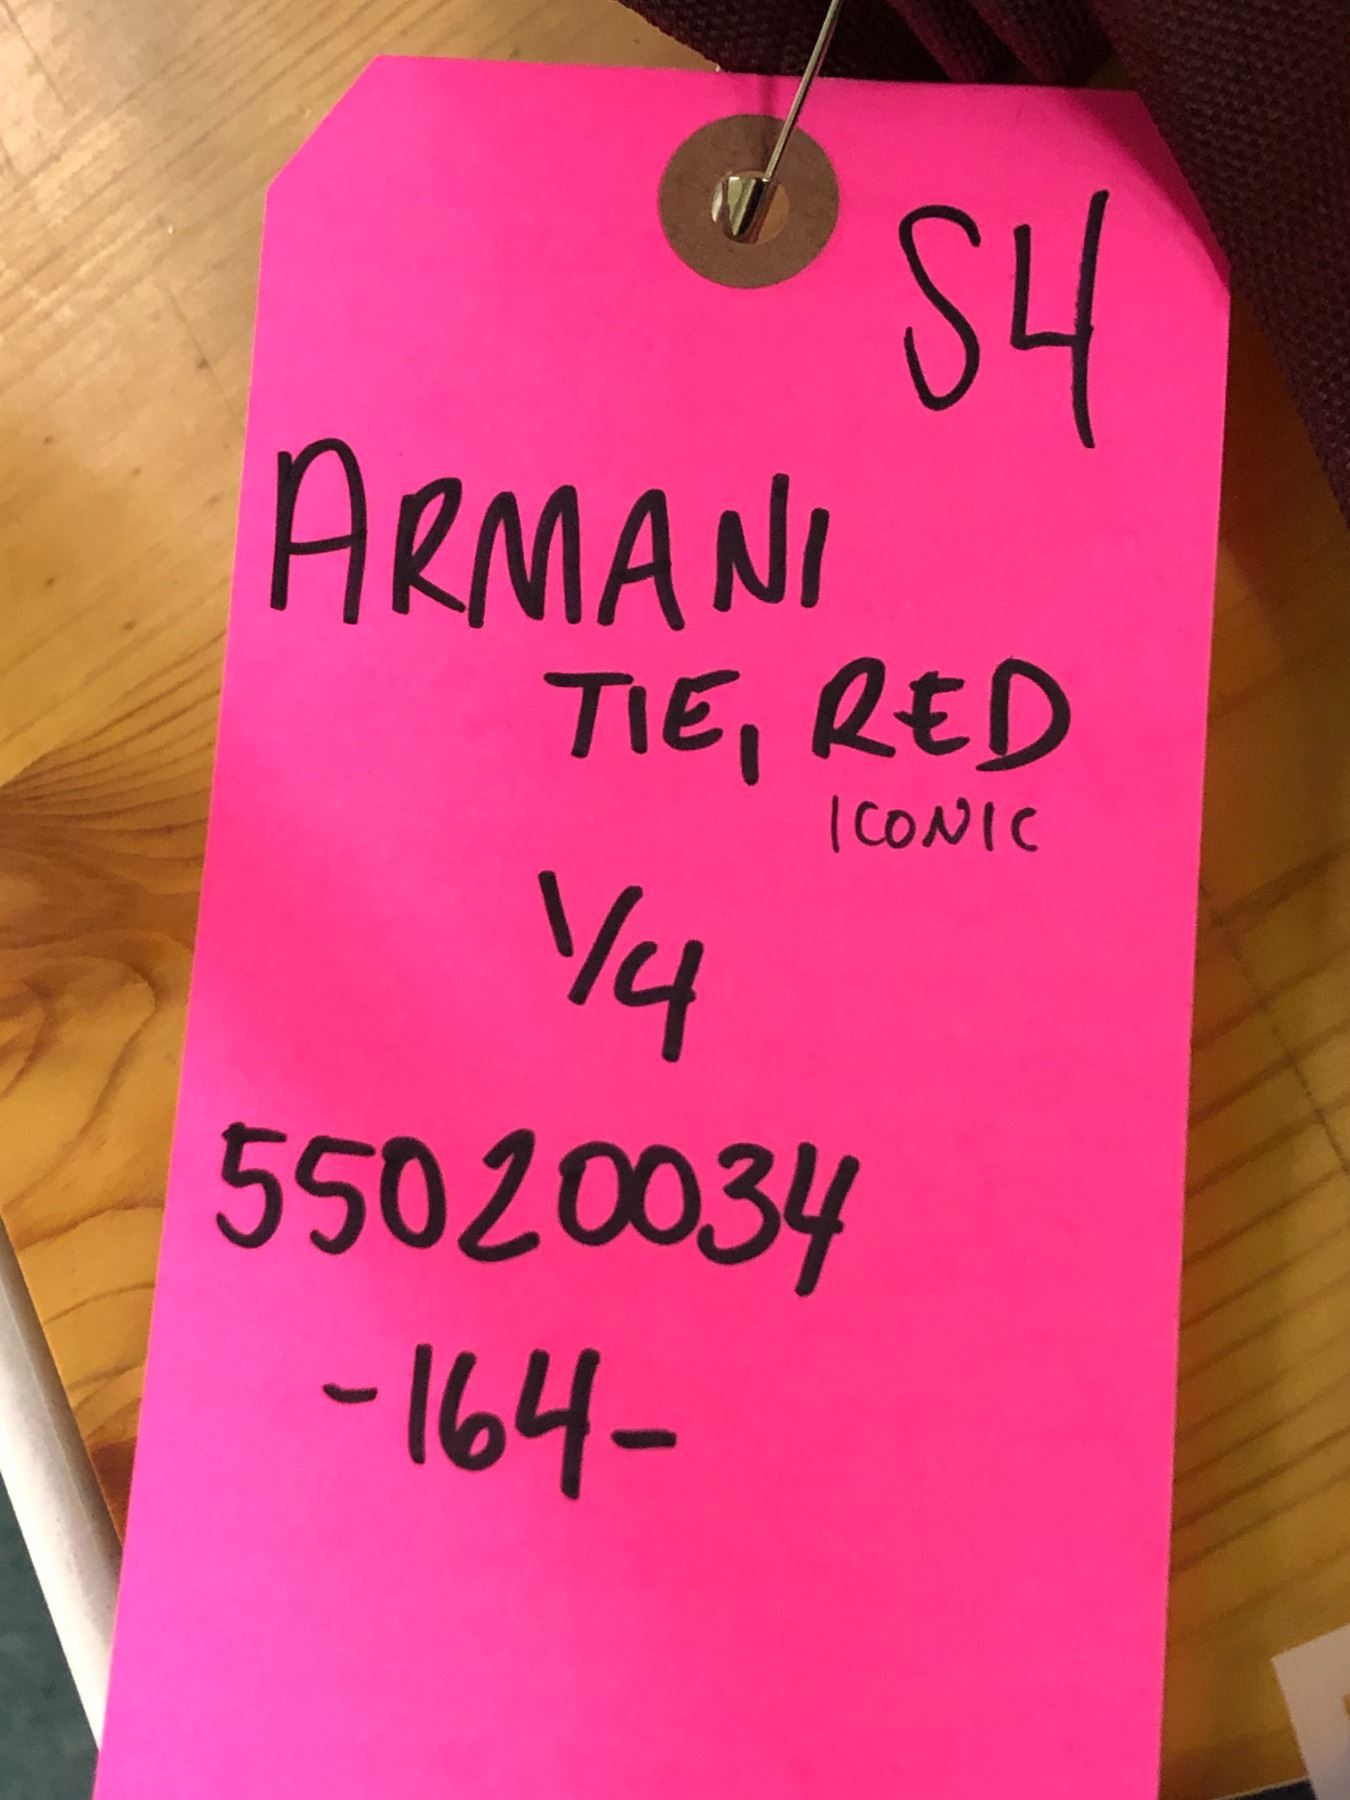 S4
ARMANI
TIE, RED
ICONIC
1/4
55020034
-164-